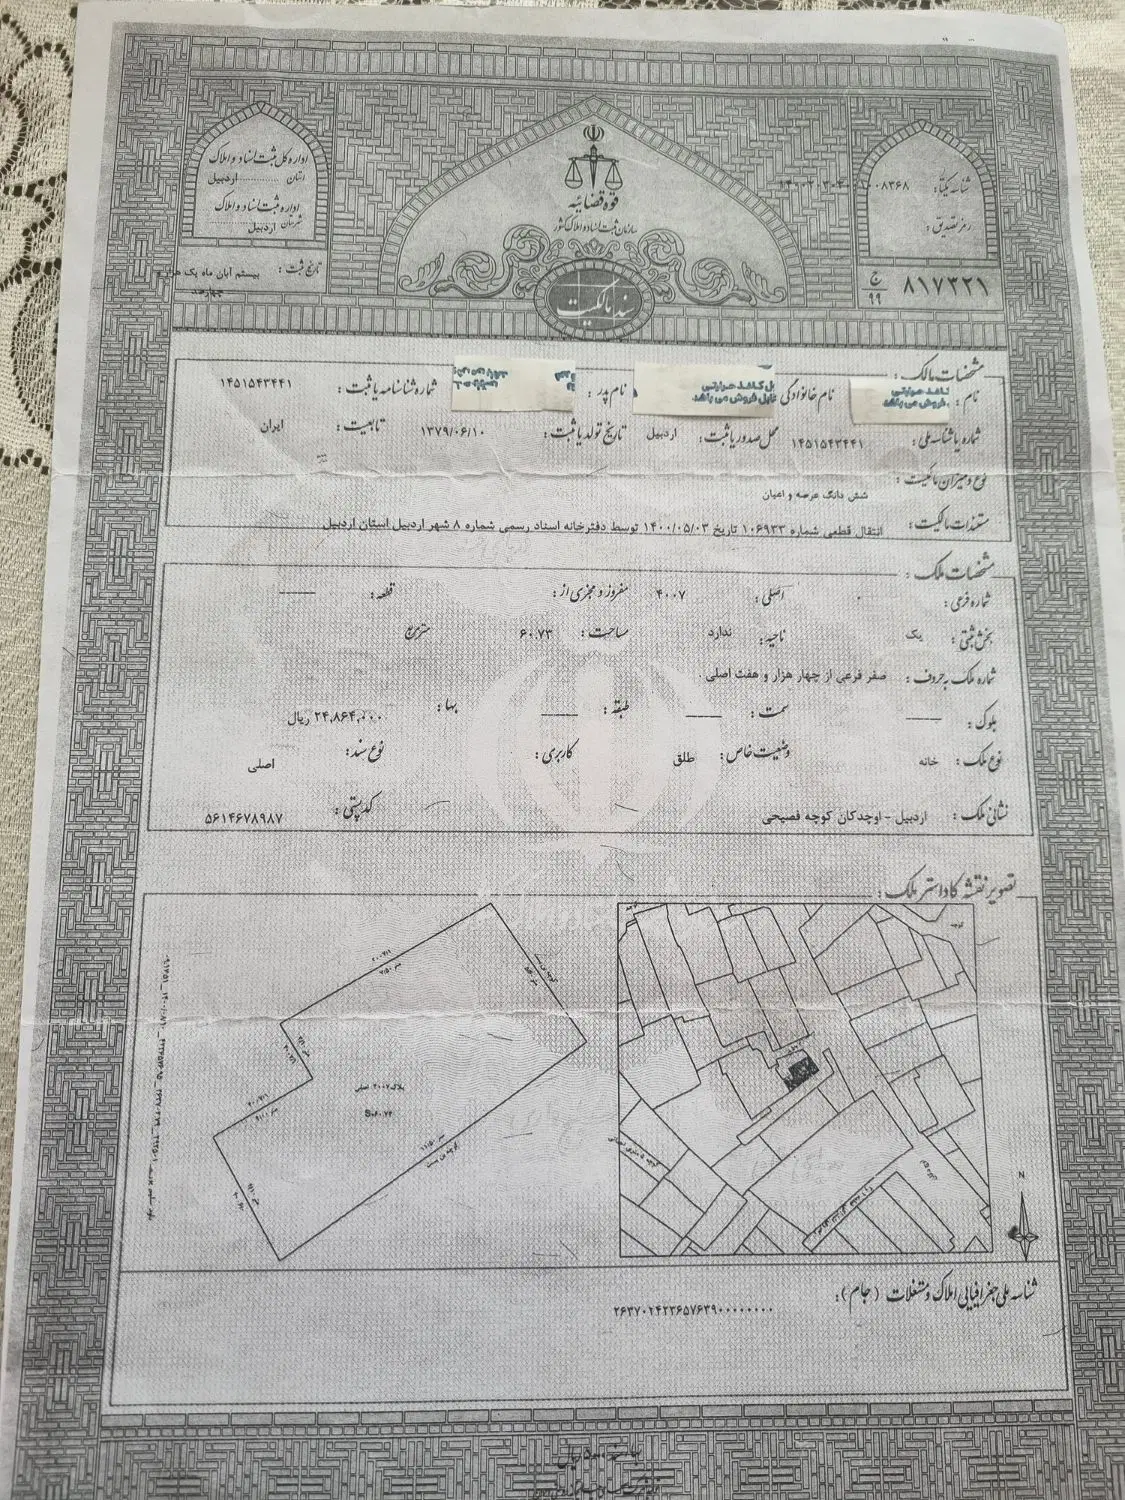 اداره کل ثبت اسناد و املاک
استان .............. اردبیل
اداره ثبت اسناد و املاک
شهرستان اردبیل
تاریخ ثبت : بیستم آبان ماه یک هزار و
چهارصد
قوه قضائیه
سازمان ثبت اسناد و املاک کشور
سند مالکیت
شناسه یکتا :
رمز تصدیق :
ج
۹۹
۸۱۷۳۲۱
مشخصات مالک :
نام : نام خانوادگی نام پدر : شماره شناسنامه یا ثبت : ۱۴۵۱۵۴۳۴۴۱
کاغذ حرارتی
قابل فروش می باشد
شماره یا شناسه ملی : ۱۴۵۱۵۴۳۴۴۱ محل صدور یا ثبت : اردبیل تاریخ تولد یا ثبت : ۱۳۷۹/۰۶/۱۰ تابعیت : ایران
نوع و میزان مالکیت : شش دانگ عرصه و اعیان
مستندات مالکیت : انتقال قطعی شماره ۱۰۶۹۳۳ تاریخ ۱۴۰۰/۰۵/۰۳ توسط دفترخانه اسناد رسمی شماره ۸ شهر اردبیل استان اردبیل
مشخصات ملک :
شماره فرعی : ۰ اصلی : ۴۰۰۷ مفروز و مجزی از : قطعه :
بخش ثبتی : یک ناحیه : ندارد مساحت : ۶۰.۷۳ مترمربع
شماره ملک به حروف : صفر فرعی از چهار هزار و هفت اصلی .
بلوک : سمت : طبقه : بها : ۲۴,۸۶۴,۰۰۰ ریال
نوع ملک : خانه وضعیت خاص : طلق کاربری : نوع سند : اصلی
نشانی ملک : اردبیل - اوچدکان کوچه فصیحی کدپستی : ۵۶۱۴۶۷۸۹۸۷
تصویر نقشه کاداستر ملک :
پلاک ۴۰۰۷ اصلی
کوچه بن بست
کوچه بن بست
کوچه
N
شناسه ملی جغرافیایی املاک و مستغلات (جام) :
۲۶۳۷۰۲۴۲۳۶۵۷۶۳۹۰۰۰۰۰۰۰۰